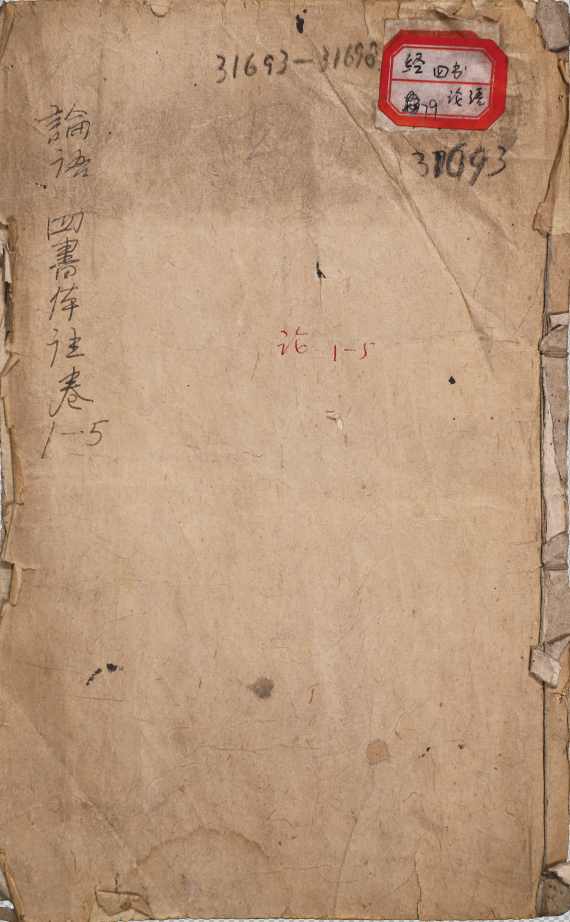 31693—31698
经 四书
79 论语
31693
論语 四書体注卷
1—5
论 1—5